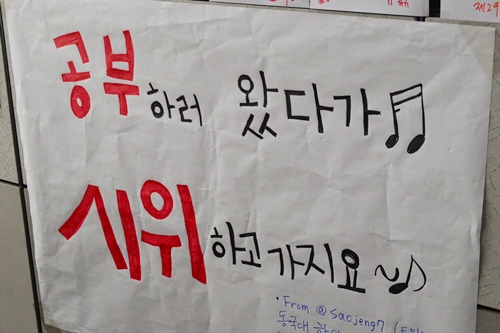 공부하러 왔다가♬
시위하고가지요~♪
• From @saojeng7
동국대
제29